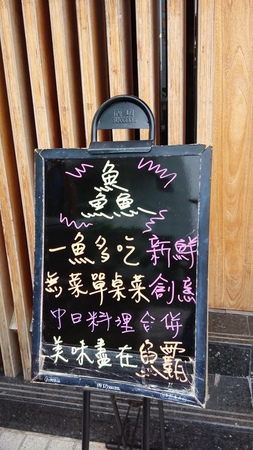 魚
魚魚
一魚多吃 新鮮
無菜單桌菜創意
中日料理合併
美味盡在魚霸